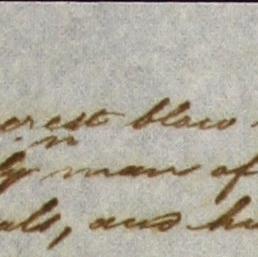 erest blow
n
ly man of
als, and hu